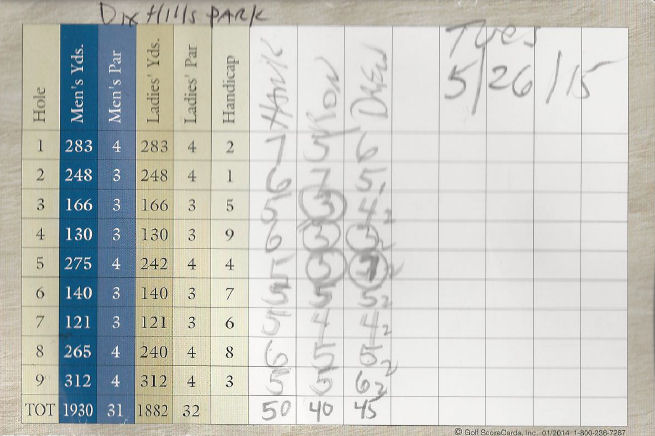 Dix Hills PARK
Hole Men's Yds. Men's Par Ladies' Yds. Ladies' Par Handicap HANK RON DREW Tues
5/26/15
1 283 4 283 4 2 7 5 6
2 248 3 248 4 1 6 7 5
3 166 3 166 3 5 5 3 4 2
4 130 3 130 3 9 6 3 3 2
5 275 4 242 4 4 5 3
6 140 3 140 3 7 5 5 5 2
7 121 3 121 3 6 5 4 4 2
8 265 4 240 4 8 6 5 5 2
9 312 4 312 4 3 5 6 2
TOT 1930 31 1882 32 50 40 45
© Golf ScoreCards, Inc. 01/2014 1-800-238-7267